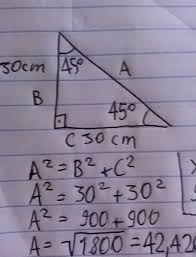 30cm
45°
A
B
45°
C 30 cm
A² = B² + C²
A² = 30² + 30²
A² = 900 + 900
A = √1800 = 42,42